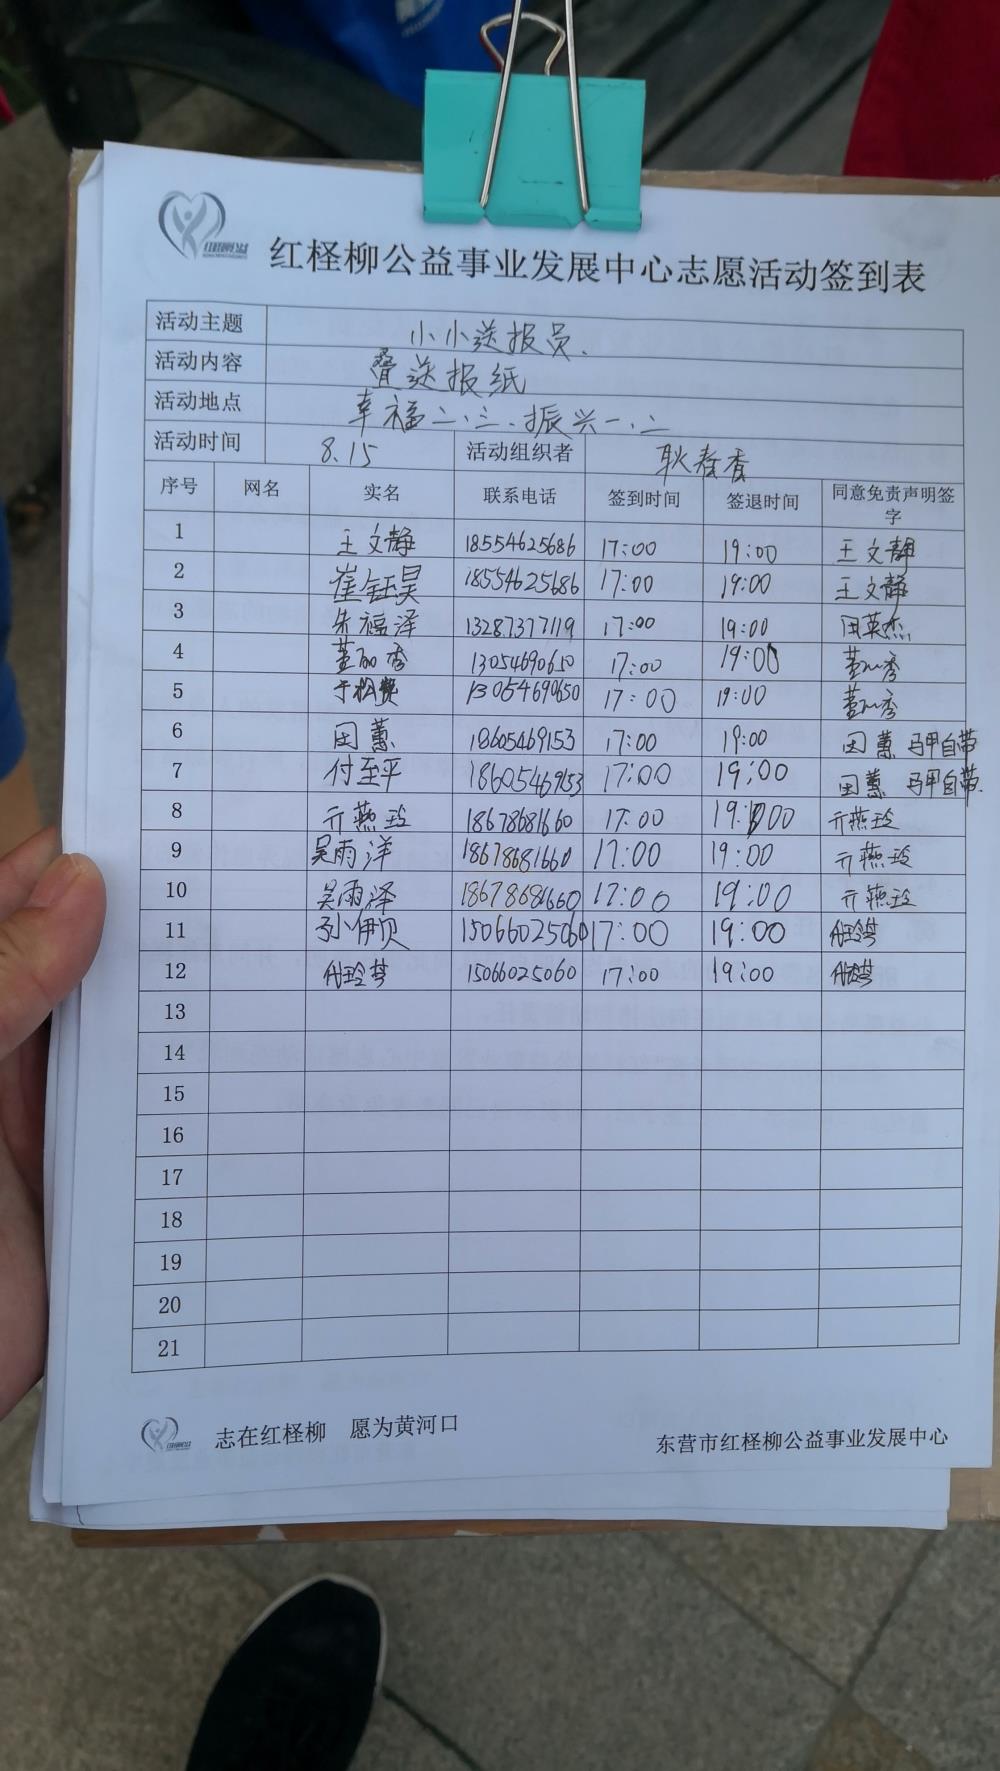 红柽柳公益事业发展中心志愿活动签到表
活动主题 小小送报员.
活动内容 叠送报纸
活动地点 幸福二、三、振兴一、二
活动时间 8.15 活动组织者 耿春香
序号 网名 实名 联系电话 签到时间 签退时间 同意免责声明签字
1 王文静 18554625686 17:00 19:00 王文静
2 崔钰昊 18554625686 17:00 19:00 王文静
3 朱福泽 13287377119 17:00 19:00 田英杰
4 董丽秀 13054690650 17:00 19:00 董丽秀
5 于松 13054690650 17:00 19:00 董丽秀
6 田蕙 18605469153 17:00 19:00 田蕙 马甲自带
7 付至平 18605469153 17:00 19:00 田蕙 马甲自带.
8 亓燕玲 18678681660 17:00 19:00 亓燕玲
9 吴雨洋 18678681660 17:00 19:00 亓燕玲
10 吴雨泽 18678681660 17:00 19:00 亓燕玲
11 孙伊贝 15066025060 17:00 19:00 代玲梦
12 代玲梦 15066025060 17:00 19:00 代玲梦
13
14
15
16
17
18
19
20
21
志在红柽柳 愿为黄河口
东营市红柽柳公益事业发展中心